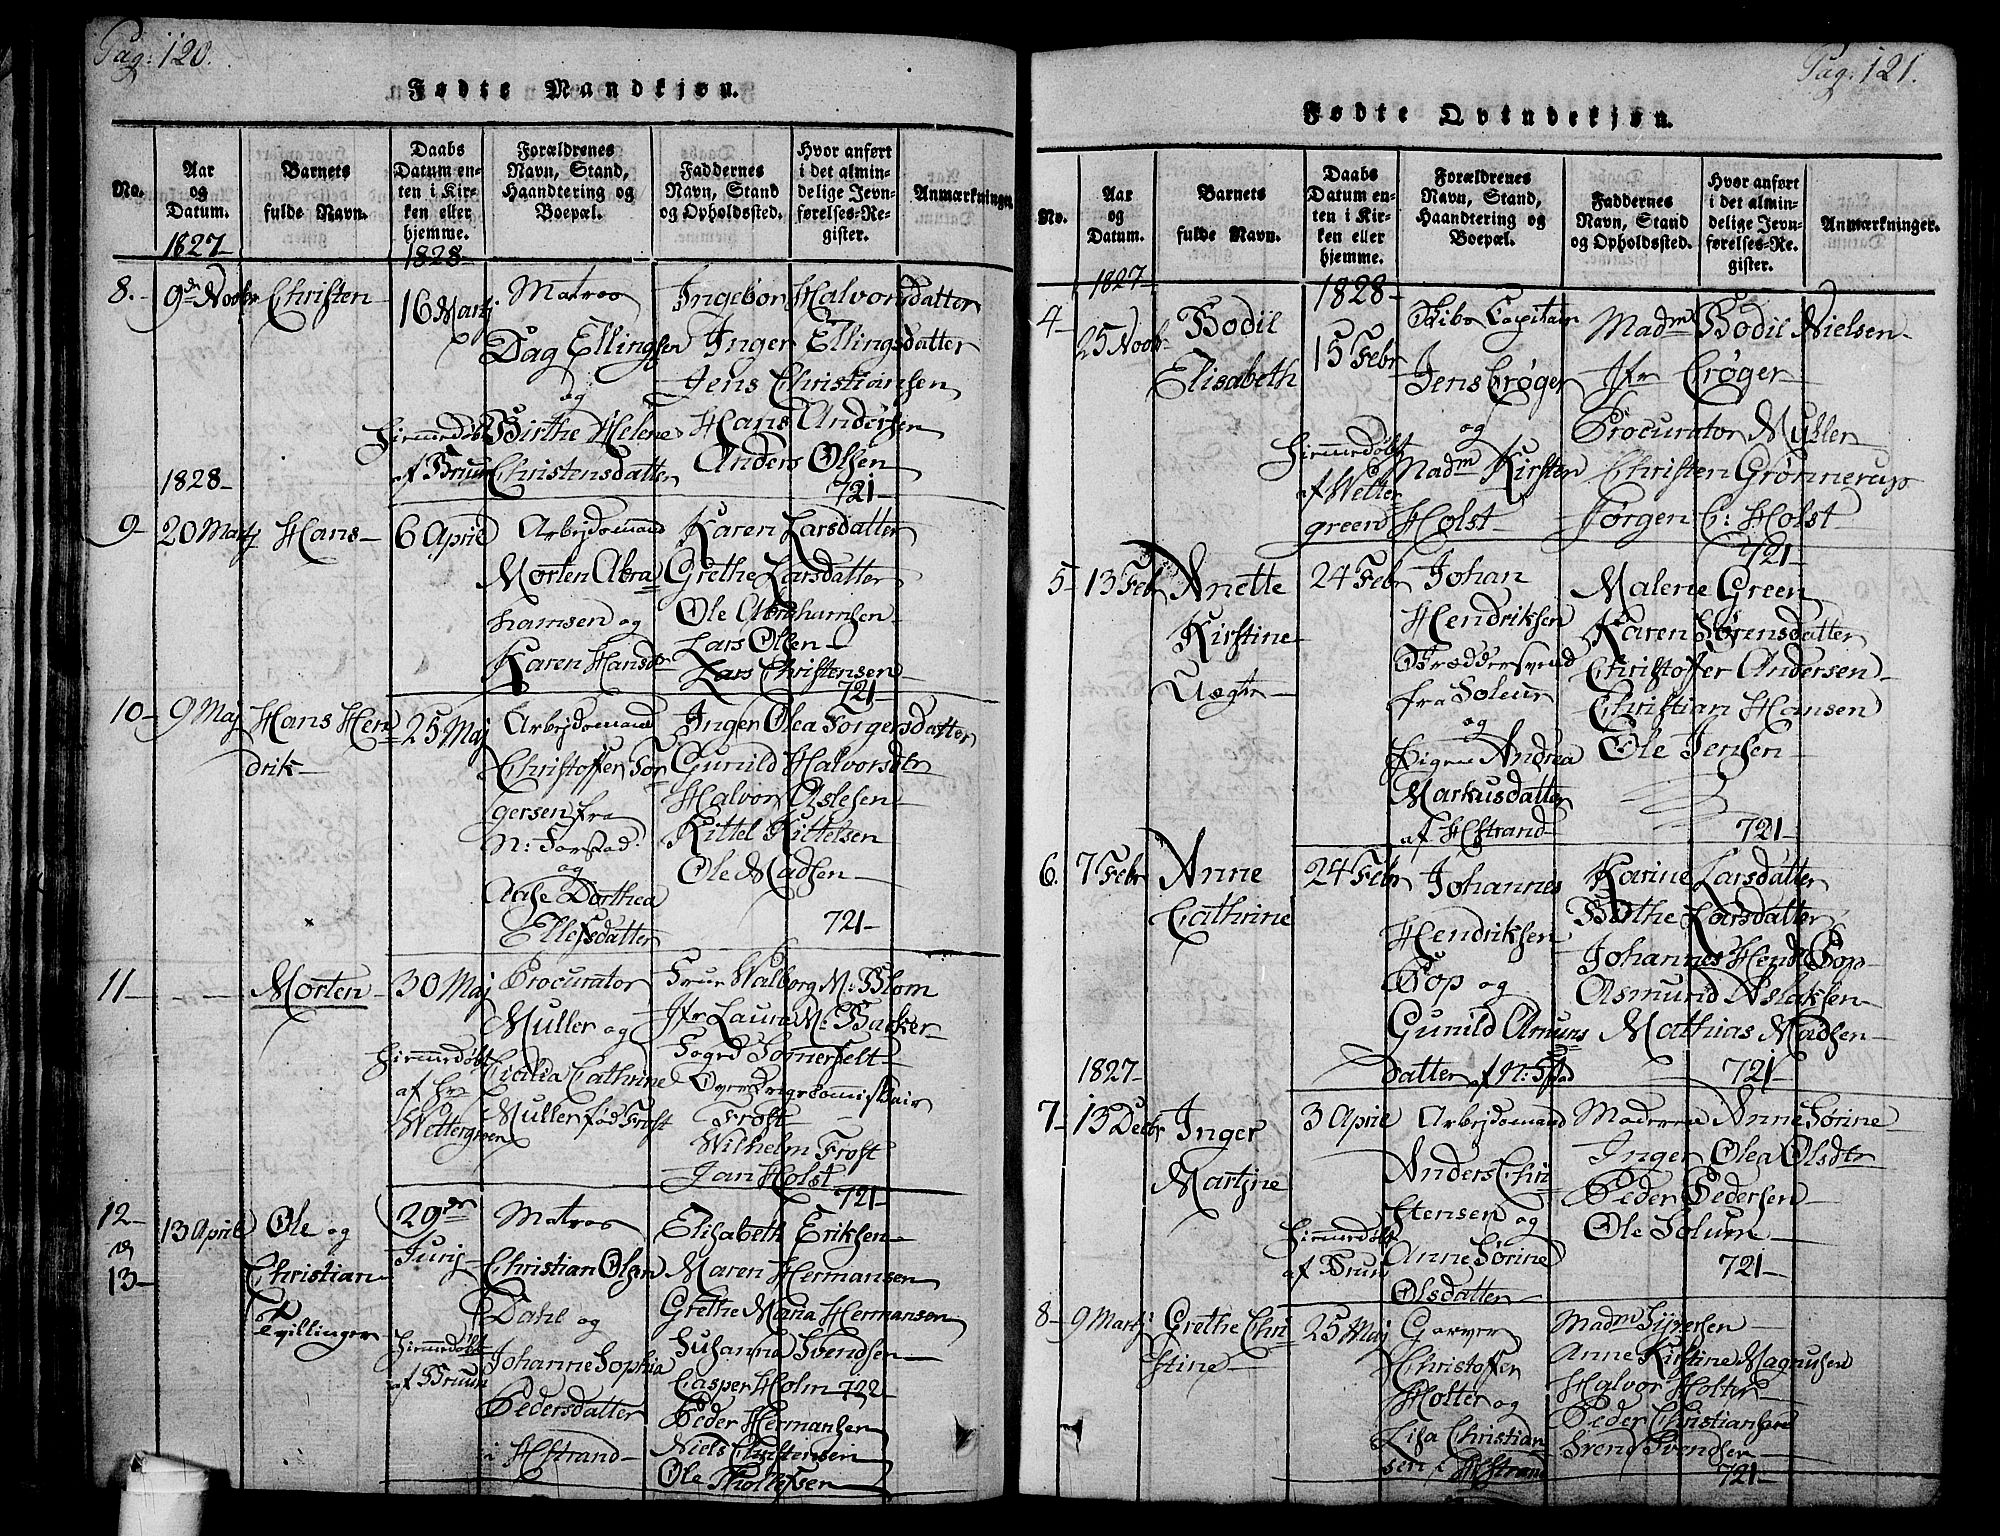 Pag: 120.
Fødte Mandkjøn.
No.
Aar og Datum.
Barnets fulde Navn.
Daabs Datum enten i Kirken eller hjemme.
Forældrenes Navn, Stand, Haandtering og Boepæl.
Faddernes Navn, Stand og Opholdssted.
Hvor anført i det almindelige Jevnførelses-Register.
Anmærkninger.
1827
1828
8. 9de Novbr Christen
16 Martj
Hiemedøbt
af Bruun
Matros
Dag Ellingsen
og
Birthe Helene
Christensdatter
Ingebor Halvorsdatter
Inger Ellingsdatter
Jens Christiansen
Hans Andersen
Anders Olsen
721
1828
9 20 Martj Hans
6 April
Arbejdsmand
Morten Abra
hamsen og
Karen Hansdr
Karen Larsdatter
Grethe Larsdatter
Ole Abrahamsen
Lars Olsen
Lars Christensen
721
10 9 Maj Hans Hen
drik
25 Maj
Arbejdsmand
Christoffer Tor
gersen fra
N: Torstad
og
Aase Dorthea
Ellefsdatter
Inger Olea Torgersdatter
Gunild Halvorsdtr
Halvor Aslesen
Kittel Kittelsen
Ole Madsen
721
11 Morten
30 Maj
Hiemedøbt
af Hr
Wettergreen
Procurator
Muller og
Cicilia Cathrine
Muller fød Frost
Frue Walborg M: Blom
Jfr Laura M: Backer
Sogpr Somerfelt
Over Krigscommissair
Frost
Wilhelm Frost
Jan Holst
721
12
og
13
13 April
Ole og
Christian
Tvillinger
29de
Junj
Hiemedøbt
af Bruun
Matros
Christian Olsen
Dahl og
Johanne Sophia
Pedersdatter
i HStrand
Elisabeth Eriksen
Maren Hermansen
Grethe Maria Hermansen
Susanna Svendsen
Casper Holm 722
Peder Hermansen
Niels Christensen
Ole Thollefsen
Pag: 121.
Fødte Qvindekjøn.
No.
Aar og Datum.
Barnets fulde Navn.
Daabs Datum enten i Kirken eller hjemme.
Forældrenes Navn, Stand, Haandtering og Boepæl.
Faddernes Navn, Stand og Opholdssted.
Hvor anført i det almindelige Jevnførelses-Register.
Anmærkninger.
1827
1828
4 25 Novbr
Bodil
Elisabeth
15 Febr
Hiemedøbt
af Wetter
green
Skibs Capitain
Jens Crøger
og
Madm Kirsten
Holst
Madm Bodil Nielsen
Jfr Crøger
Procurator Myller
Christen Grønnerup
Jørgen C: Holst
721
5 13 Febr Anette
Kirstine
Uægte
24 Febr
Johan
Hendriksen
fra Solum
og
Pigen Andrea
Markusdatter
af HStrand
Malene Green
Karen Sørensdatter
Christoffer Andersen
Christian Hansen
Ole Jensen
721
6. 7 Febr Anne
Cathrine
24 Febr
Johannes
Hendriksen
Sop og
Gunild Amuns
datter af N: Stad
Karine Larsdatter
Birthe Larsdatter
Johannes Hend: Sop
Asmund Aslaksen
Mathias Madsen
721
1827
7 13 Decbr Inger
Martine
3 April
Hiemedøbt
af Bruun
Arbejdsmand
Anders Chri
stensen og
Anne Sørine
Olsdatter
Moderen Anne Sørine
Inger Olea Olsdtr
Peder Pedersen
Ole Solum
721
8 9 Martj Grethe Chri
stine
25 Maj
Garver
Christoffer
Holter og
Lisa Christian
sen i HStrand
Madm Syversen
Anne Kirstine Magnusen
Halvor Holter
Peder Christiansen
Svend Svendsen
721